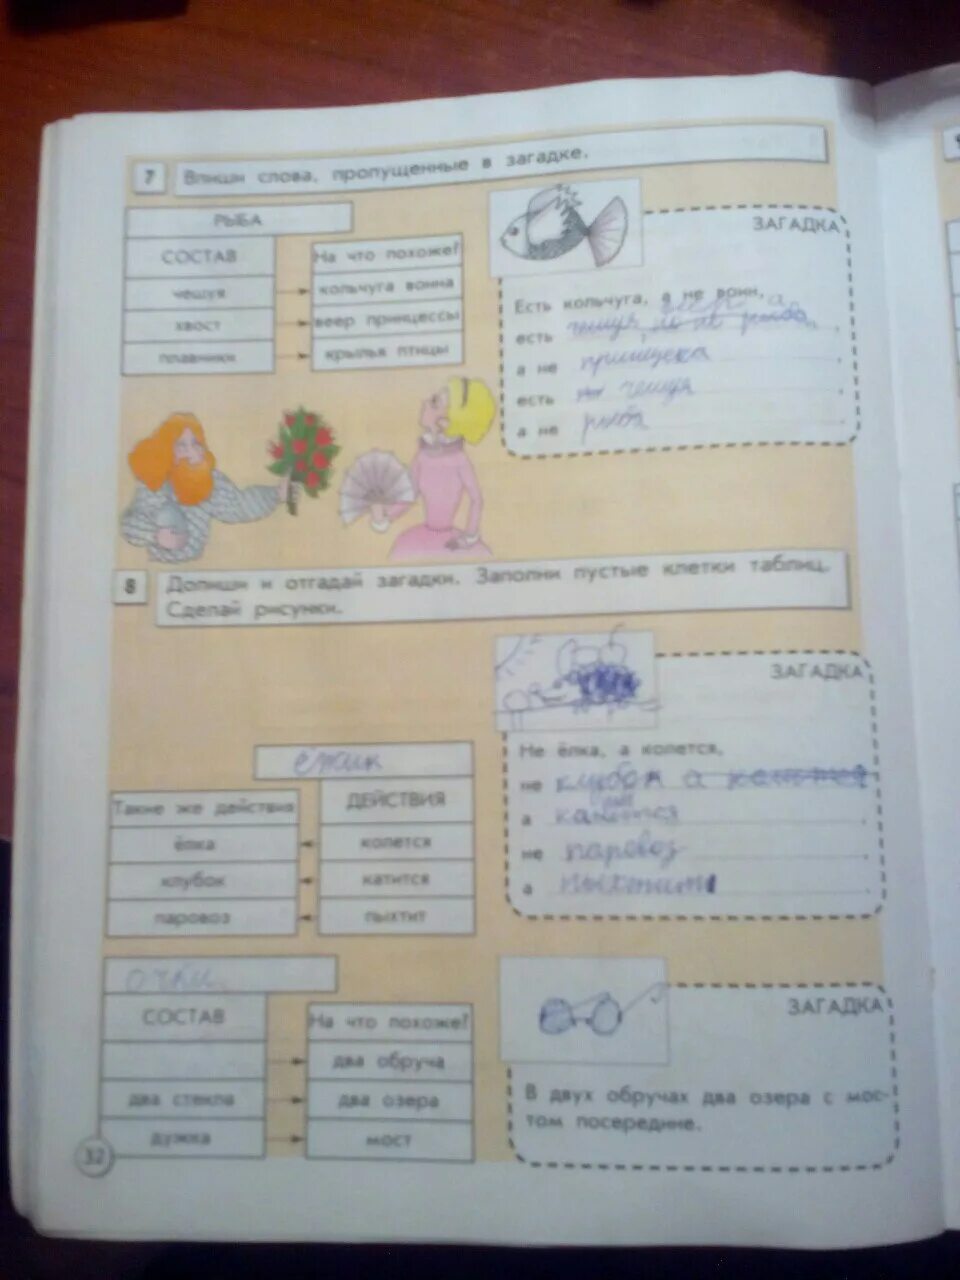 7 Впиши слова, пропущенные в загадке.
РЫБА
СОСТАВ
На что похоже?
чешуя
кольчуга воина
хвост
веер принцессы
плавники
крылья птицы
ЗАГАДКА
Есть кольчуга, а не воин,
есть чешуя рыба,
а не принцеса
есть чешуя
а не рыба
8 Допиши и отгадай загадки. Заполни пустые клетки таблиц.
Сделай рисунки.
ёжик
Такие же действия
ДЕЙСТВИЯ
ёлка
колется
клубок
катится
паровоз
пыхтит
ЗАГАДКА
Не ёлка, а колется,
не клубок а
а
не паровоз
а пыхтит
очки
СОСТАВ
На что похоже?
два обруча
два стекла
два озера
дужка
мост
ЗАГАДКА
В двух обручах два озера с мос-
том посередине.
32